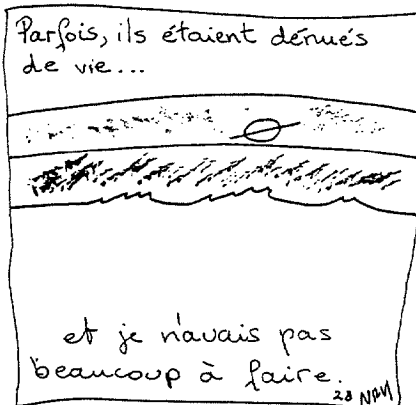 Parfois, ils étaient dénués
de vie...
et je n'avais pas
beaucoup à faire.